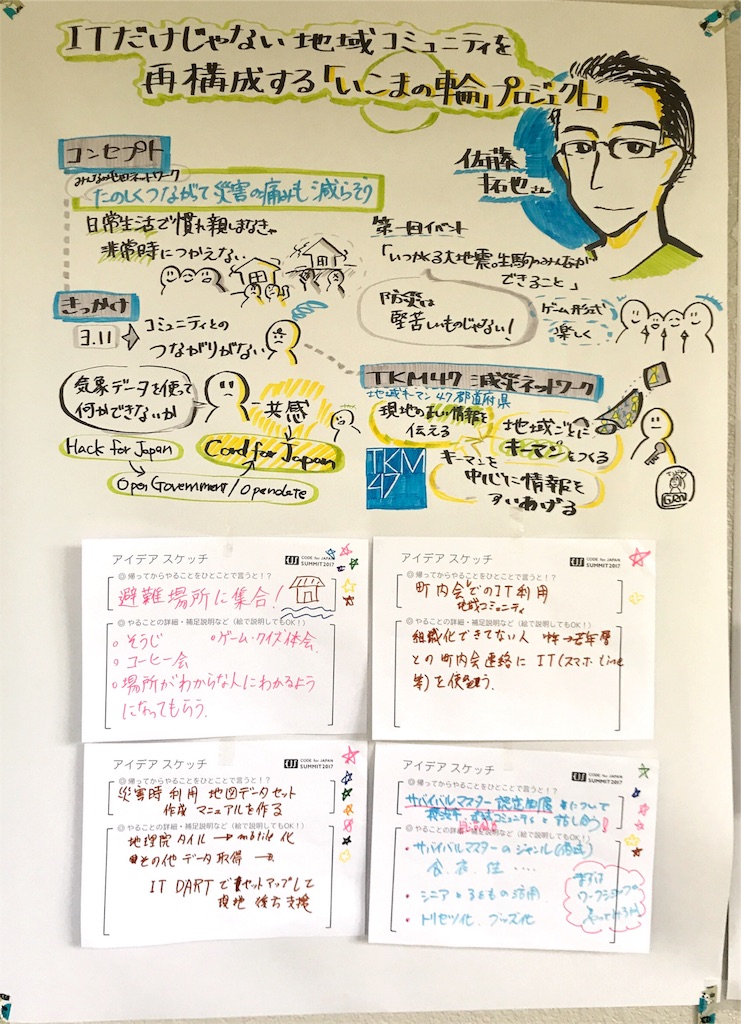 ITだけじゃない 地域コミュニティを
再構成する「いこまの輪」プロジェクト
佐藤
拓也さん
コンセプト
みんなの地図ネットワーク
たのしくつながって災害の痛みも減らそう
日常生活で慣れ親しまなきゃ
非常時につかえない
第一回イベント
「いつか来る大地震。生駒のみんなが
できること」
防災は
堅苦しいものじゃない!
ゲーム形式
楽しく
きっかけ
3.11
コミュニティとの
つながりがない
気象データを使って
何かできないか
共感
Hack for Japan
Cord for Japan
Open Government/Opendate
TKM47 減災ネットワーク
地域キーマン47都道府県
現地の正しい情報を
伝える
地域ごとに
キーマンをつくる
TKM
47
キーマンを
中心に情報を
すいあげる
アイデア スケッチ
CODE for JAPAN
SUMMIT2017
◎ 帰ってからやることをひとことで言うと!?
避難場所に集合!
◎ やることの詳細・補足説明など(絵で説明してもOK!)
・そうじ ・ゲーム・クイズ体会
・コーヒー会
・場所がわからな人にわかるよう
になってもらう.
アイデア スケッチ
CODE for JAPAN
SUMMIT2017
◎ 帰ってからやることをひとことで言うと!?
町内会でのIT利用
地域コミュニティ
◎ やることの詳細・補足説明など(絵で説明してもOK!)
組織化できてない人 中年→若年層
との町内会連絡にIT(スマホ Line
等)を使う.
アイデア スケッチ
CODE for JAPAN
SUMMIT2017
◎ 帰ってからやることをひとことで言うと!?
災害時利用 地図データセット
作成マニュアルを作る
◎ やることの詳細・補足説明など(絵で説明してもOK!)
地理院タイル → mobile化
その他データ取得 →
IT DARTでセットアップして
現地 後方支援
アイデア スケッチ
CODE for JAPAN
SUMMIT2017
◎ 帰ってからやることをひとことで言うと!?
サバイバルマスター認定制度 について
地域コミュニティと話し合う!
◎ やることの詳細・補足説明など(絵で説明してもOK!)
・サバイバルマスターのジャンル
食、衣、住 ‥‥
・シニア 子ども 活用
・トリセツ化、グッズ化
まずは
ワークショップから
やってみる